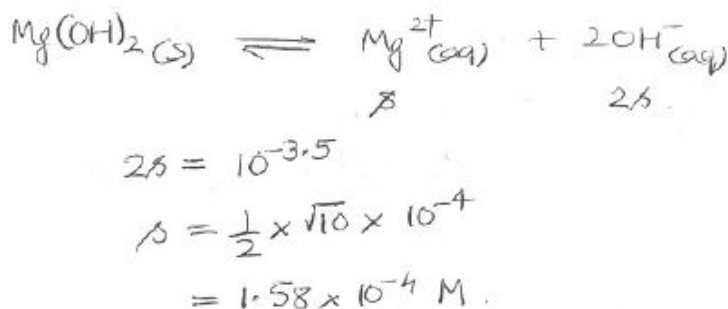 Mg(OH)₂ (s) ⇌ Mg²⁺ (aq) + 2OH⁻ (aq)
s 2s.
2s = 10⁻³·⁵
s = 1/2 × √10 × 10⁻⁴
= 1.58 × 10⁻⁴ M.